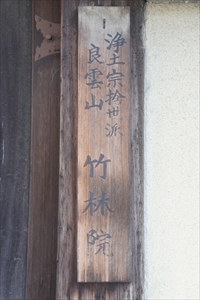 浄土宗捨世派
良雲山
竹林院